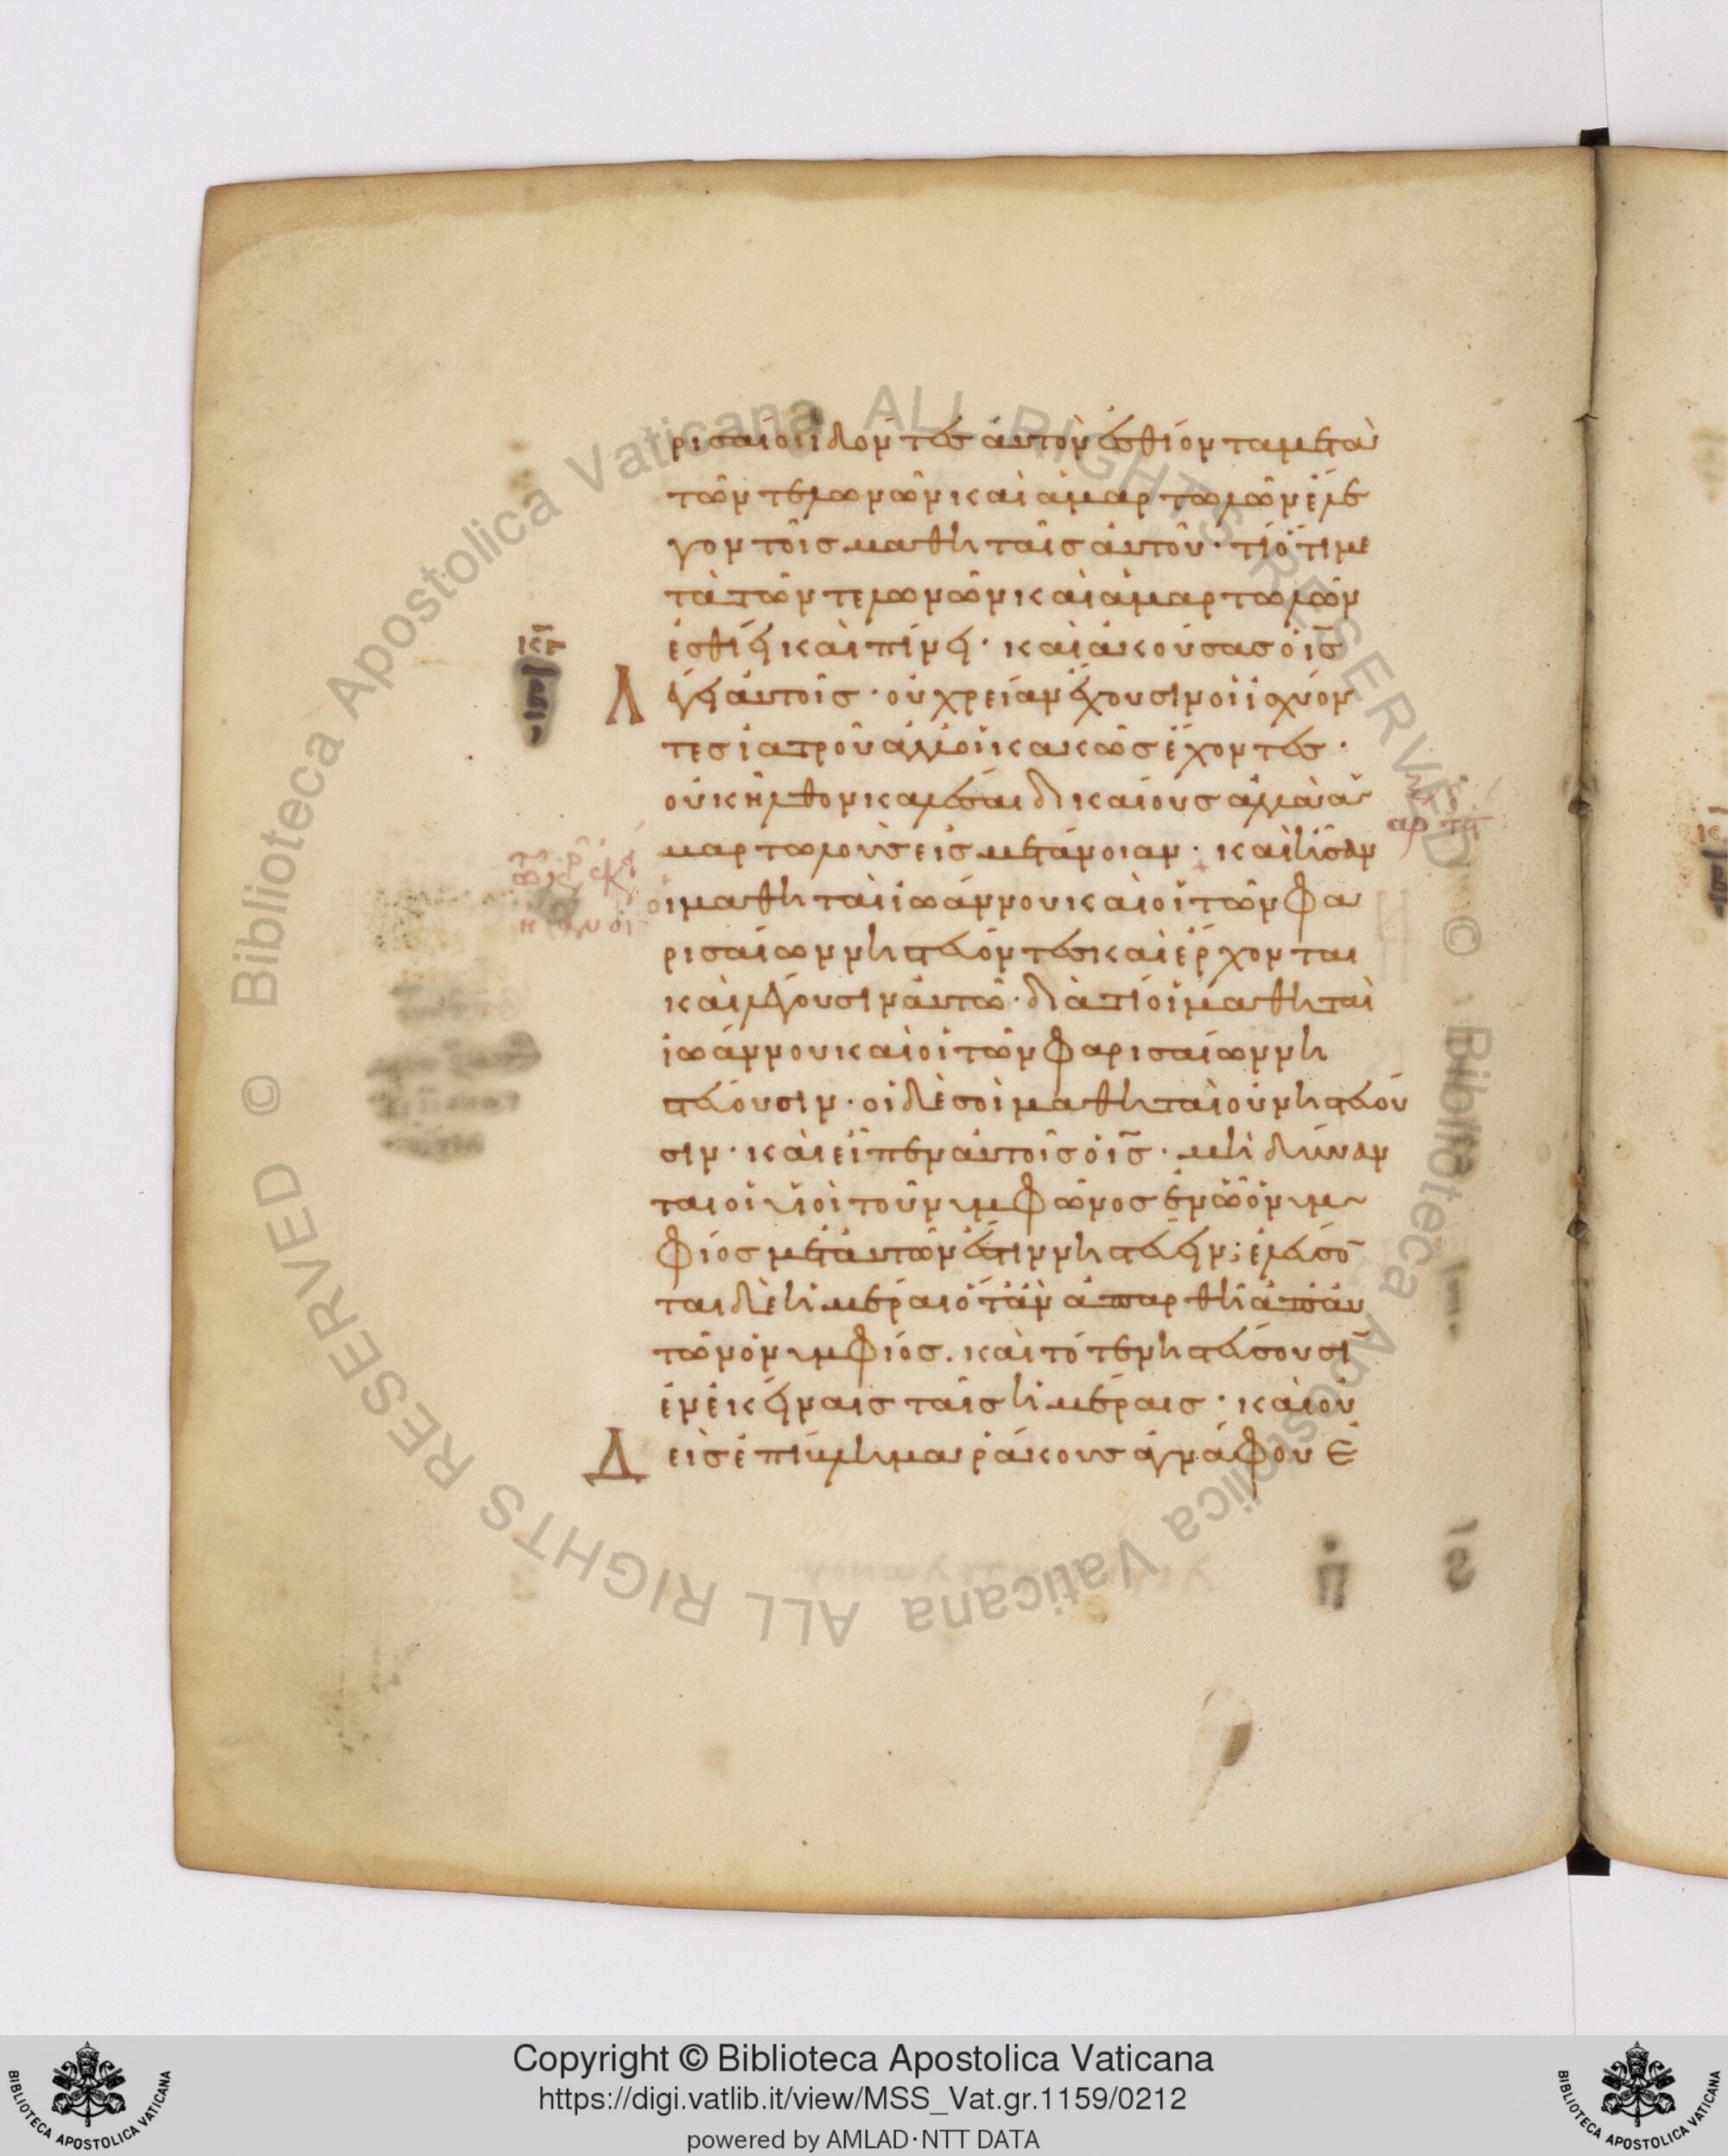 ρισαίοι ἰδόντες αὐτὸν ἐσθίοντα μετὰ
τῶν τελωνῶν καὶ ἁμαρτωλῶν ἔλε
γον τοῖς μαθηταῖς αὐτοῦ· τί ὅτι με
τὰ τῶν τελωνῶν καὶ ἁμαρτωλῶν
ἐσθίει καὶ πίνει· καὶ ἀκούσας ὁ ις̅
Λέγει αὐτοῖς· οὐ χρείαν ἔχουσιν οἱ ἰσχύον
τες ἰατροῦ ἀλλ οἱ κακῶς ἔχοντες·
οὐκ ἦλθον καλέσαι δικαίους ἀλλὰ ἁ
μαρτωλοὺς εἰς μετάνοιαν· καὶ ἦσαν
οἱ μαθηταὶ ἰωάννου καὶ οἱ τῶν φα
ρισαίων νηστεύοντες καὶ ἔρχονται
καὶ λέγουσιν αὐτῶ· διατί οἱ μαθηταὶ
ἰωάννου καὶ οἱ τῶν φαρισαίων νη
στεύουσιν· οἱ δὲ σοὶ μαθηταὶ οὐ νηστεύου
σιν· καὶ εἶπεν αὐτοῖς ὁ ις̅· μὴ δύναν
ται οἱ υἱοὶ τοῦ νυμφῶνος ἐν ὧ ὁ νυμ
φίος μετ αὐτῶν ἐστιν νηστεύειν; ἐλεύσο̅
ται δὲ ἡμέραι ὅταν ἀπαρθῆ ἀπ αὐ
τῶν ὁ νυμφίος. καὶ τότε νηστεύσουσι̅
ἐν ἐκείναις ταῖς ἡμέραις· καὶ οὐ
Δεὶς ἐπίβλημα ῥάκους ἀγνάφου ἐ
Copyright © Biblioteca Apostolica Vaticana
https://digi.vatlib.it/view/MSS_Vat.gr.1159/0212
powered by AMLAD·NTT DATA
BIBLIOTECA APOSTOLICA VATICANA
BIBLIOTECA APOSTOLICA VATICANA
© Biblioteca Apostolica Vaticana ALL RIGHTS RESERVED © Biblioteca Apostolica Vaticana ALL RIGHTS RESERVED